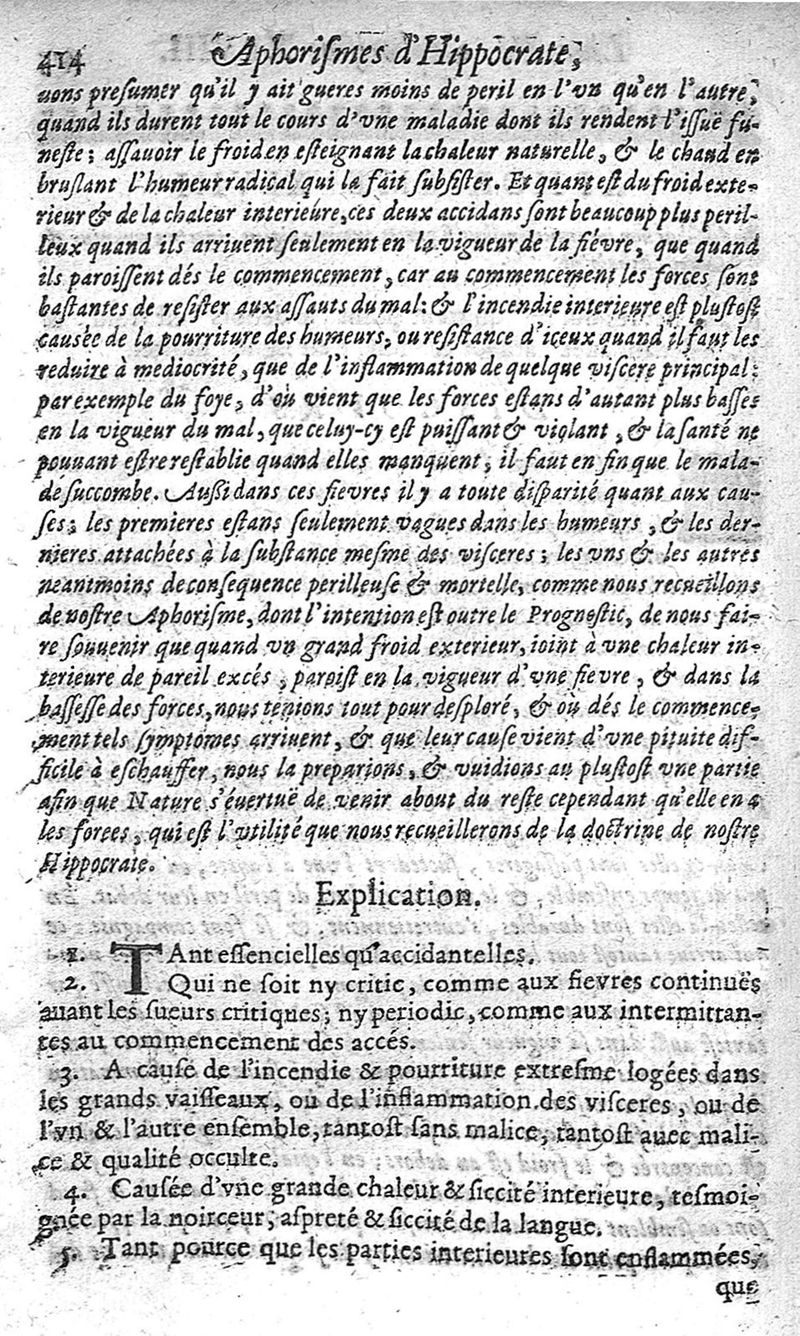 414 Aphoriſmes d'Hippocrate,
uons preſumer qu'il y ait gueres moins de peril en l'vn qu'en l'autre,
quand ils durent tout le cours d'vne maladie dont ils rendent l'iſſuë fu-
neſte; aſſauoir le froid en eſteignant la chaleur naturelle, & le chaud en
bruſlant l'humeur radical qui la fait ſubſiſter. Et quant eſt du froid exte-
rieur & de la chaleur interieure, ces deux accidans ſont beaucoup plus peril-
leux quand ils arriuent ſeulement en la vigueur de la fiévre, que quand
ils paroiſſent dés le commencement, car au commencement les forces ſont
baſtantes de reſiſter aux aſſauts du mal: & l'incendie interieure eſt pluſtoſt
causée de la pourriture des humeurs, ou reſiſtance d'iceux quand il faut les
reduire à mediocrité, que de l'inflammation de quelque viſcere principal:
par exemple du foye, d'où vient que les forces eſtans d'autant plus baſſes
en la vigueur du mal, que celuy-cy eſt puiſſant & violant, & la ſanté ne
pouuant eſtre reſtablie quand elles manquent, il faut en fin que le mala-
de ſuccombe. Auſſi dans ces fievres il y a toute diſparité quant aux cau-
ſes; les premieres eſtans ſeulement vagues dans les humeurs, & les der-
nieres attachées à la ſubſtance meſme des viſceres; les vns & les autres
neantmoins de conſequence perilleuſe & mortelle, comme nous recueillons
de noſtre Aphoriſme, dont l'intention eſt outre le Prognoſtic, de nous fai-
re ſouuenir que quand vn grand froid exterieur, ioint à vne chaleur in-
terieure de pareil excés, paroiſt en la vigueur d'vne fievre, & dans la
baſſeſſe des forces, nous tenions tout pour deſploré, & où dés le commence-
ment tels ſymptómes arriuent, & que leur cauſe vient d'vne pituite dif-
ficile à eſchauffer, nous la preparions, & vuidions au pluſtoſt vne partie
afin que Nature s'éuertuë de venir about du reſte cependant qu'elle en a
les forces, qui eſt l'vtilité que nous recueillerons de la doctrine de noſtre
Hippocrate.
Explication.
1. TAnt eſſencielles qu'accidantelles.
2. Qui ne ſoit ny critic, comme aux fievres continuës
auant les ſueurs critiques; ny periodic, comme aux intermittan-
tes au commencement des accés.
3. A cauſe de l'incendie & pourriture extreſme logées dans
les grands vaiſſeaux, ou de l'inflammation des viſceres, ou de
l'vn & l'autre enſemble, tantoſt ſans malice, tantoſt auec mali-
ce & qualité occulte.
4. Causée d'vne grande chaleur & ſiccité interieure, teſmoi-
gnée par la noirceur, aſpreté & ſiccité de la langue.
5. Tant pource que les parties interieures ſont enflammées,
que